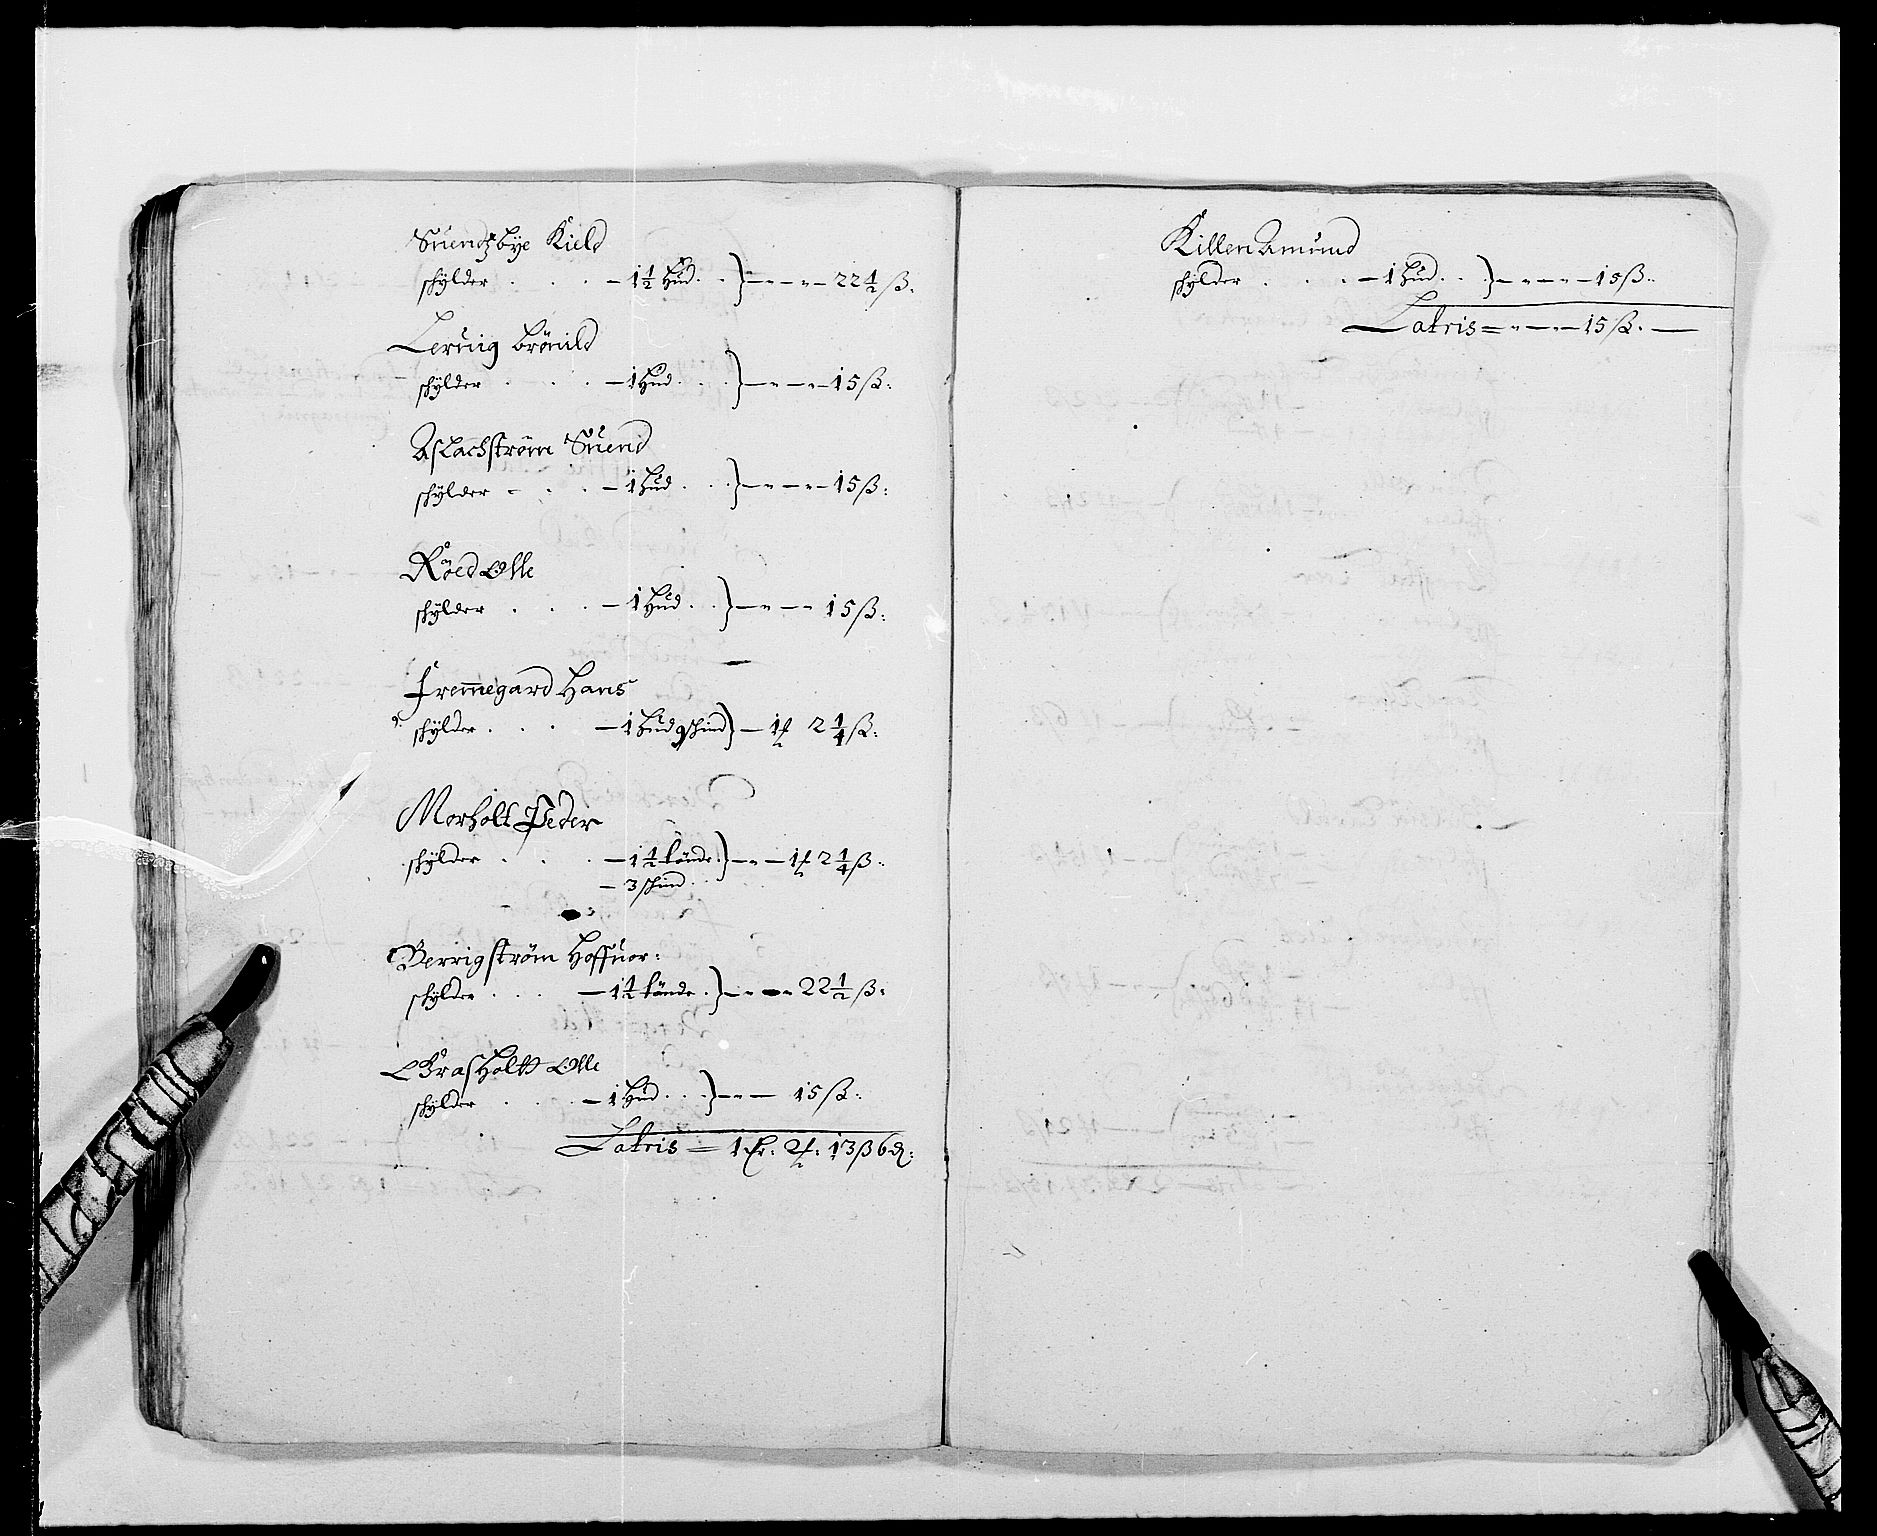 Suendzbye Kield
schylder . . . – 1 1/2 Hud . . } – – – – 22 1/2 ß.
Leruig Brönild
schylder . . . – 1 Hud . . } – – – – 15 ß:
Aslachstrøm Suend
schylder – . . – 1 Hud . . } – – – – 15 ß:
Röed Olle
schylder . . . – 1 Hud . . } – – – – 15 ß:
Fremegard Hans
schylder . . . – 1 Hud 9 schind } – 1 2 1/4 ß:
Morholt Peder
schylder . . . – 1 1/2 tönde . } – – – 1 2 1/4 ß:
– 3 schind . .
Berrigstrøm Hoffuor:
schylder . . . – 1 1/2 tönde . } – – – – 22 1/2 ß:
Grasholtt Olle
schylder . . . – 1 Hud . . . } – – – 15 ß:
Latris = 1 2 : 13 ß 6 d:
Killen Amund
schylder . . . – 1 Hud . . } – – – – 15 ß:
Latris = – – – 15 ß. –